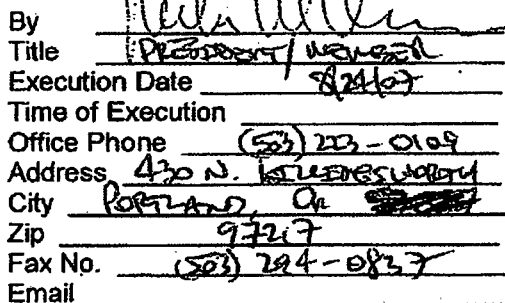 By
Title PRESIDENT/MEMBER
Execution Date 8/24/07
Time of Execution
Office Phone (503) 223-0109
Address 430 N. KILLINGSWORTH
City PORTLAND, OR
Zip 97217
Fax No. (503) 294-0837
Email